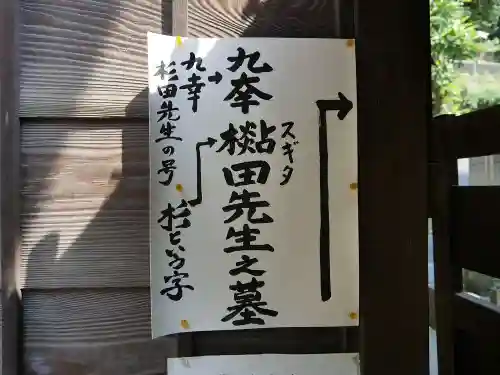 九㚗㯰田先生之墓
スギタ
九幸
杉田先生の号
杉という字